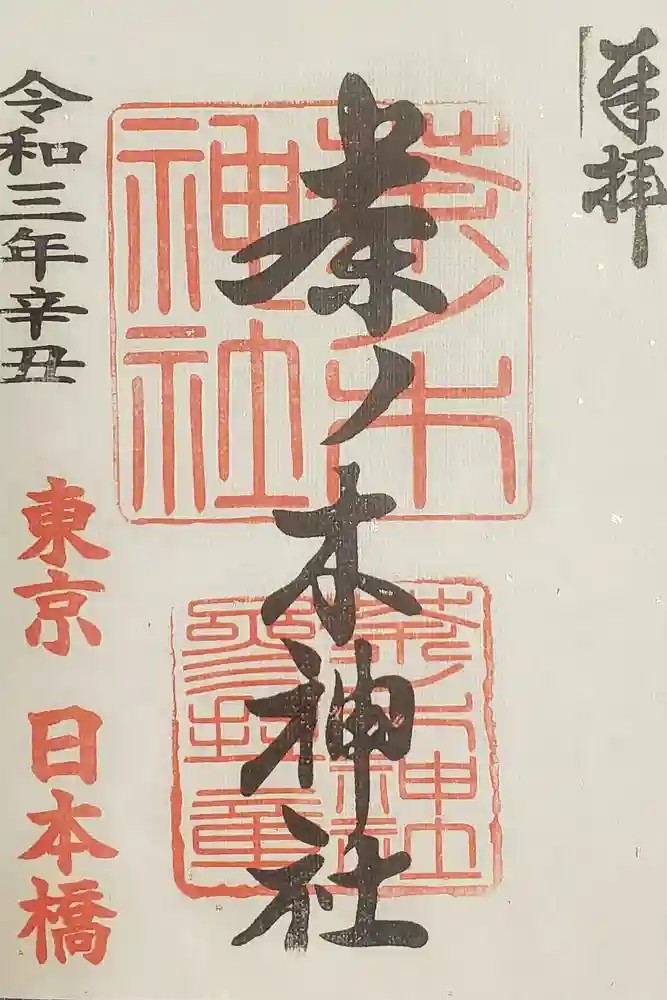 奉拝
茶ノ木神社
茶ノ木
神社
茶ノ木神社
令和三年辛丑
東京 日本橋